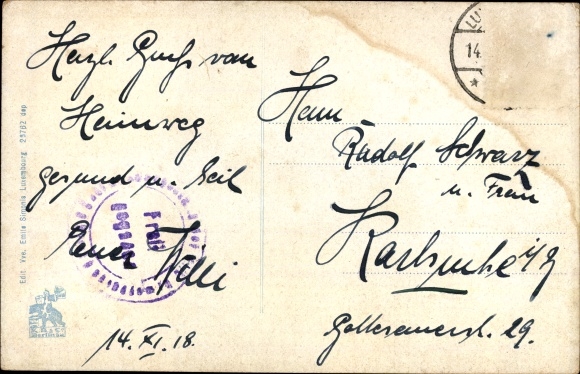 Herzl. Gruß vom
Heimweg
gesund u. heil
Euer Willi
14. XI. 18.
Herrn
Rudolf Schwarz
u. Frau
Karlsruhe i/B
Gottesauerstr. 29.
Edit. Vve. Emile Luxembourg 25782 dep
LU
14.